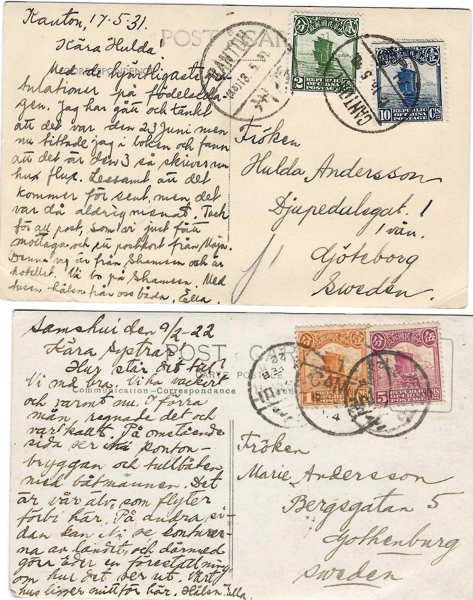 Kanton, 17.5.31.
POST CARD
Kära Hulda
Med de hjärtligaste gra-
tulationer på födelseda-
gen. Jag har gått och tänkt
att det var den 23 juni men
nu tittade jag i boken och fann
att det är den 3 så skriver nu
hux flux. Ledsamt att det
kommer för sent, men det
var då aldrig menat. Tack
för all post, som vi just fått
mottaga, och
Denna vy är från Shameen och är
hotellet. Vi bo på Shameen. Med
hälsn från oss båda,
CANTON
2
REPUBLIC
OF CHINA
POSTAGE
CANTON
10 CTS
REPUBLIC
OF CHINA
POSTAGE
Fröken
Hulda Andersson
Djupedalsgat. 1
1 vån.
Göteborg
Sweden.
Samshui den 9/2-22
POST CARD
CARTE POSTALE
Communication-Correspondence
Kära Systrar!
Hur står det till?
Vi må bra. Vi ha vackert
och varmt nu. I förra
mån. regnade det och
var kallt. På omstående
sida se ni ponton
bryggan och tullbåten
med båtmannen. Det
är vår älv, som flyter
förbi här. På andra si-
dan kan ni se
na av landet, och därmed
göra eder en föreställning
om hur det ser ut. Vårt
hus ligger mitt för här. Hälsn.
1
REPUBLIC
OF CHINA
POSTAGE
5
REPUBLIC
OF CHINA
POSTAGE
Fröken
Marie Andersson
Bergsgatan 5
Gothenburg
Sweden